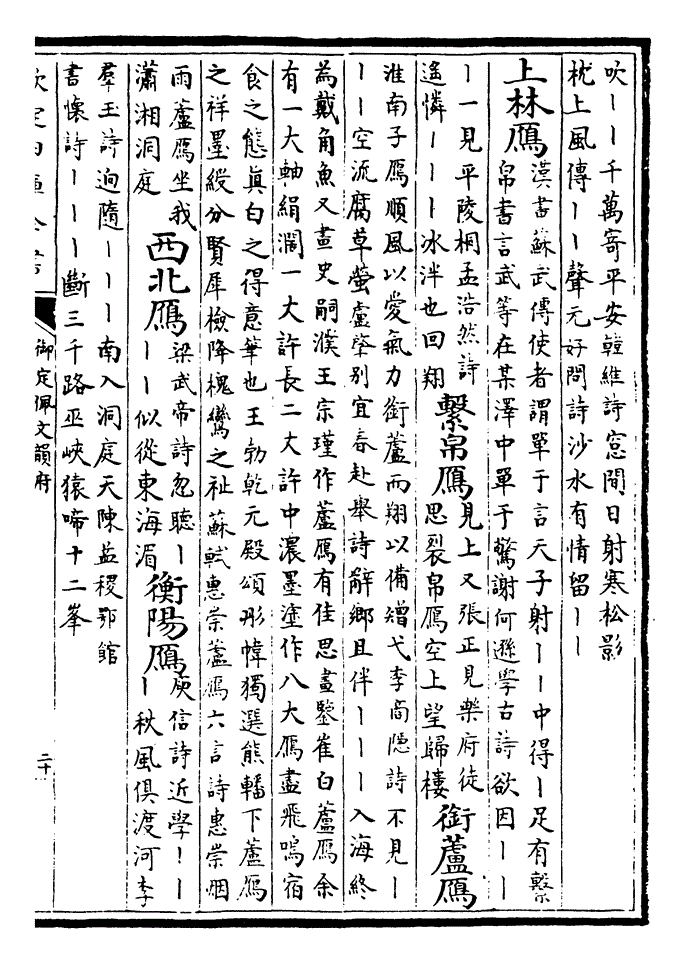 吹丨丨千萬寄平安韓維詩窓間日射寒松影
枕上風傳丨丨聲元好問詩沙水有情留丨丨
上林鴈
漢書蘇武傳使者謂單于言天子射丨丨中得丨足有繫
帛書言武等在某澤中單于驚謝何遜學古詩欲因丨丨
丨一見平陵桐孟浩然詩
遥憐丨丨丨冰泮也回翔
繫帛鴈
見上又張正見樂府徒
思裂帛鴈空上望歸樓
銜蘆鴈
淮南子鴈順風以愛氣力銜蘆而翔以備矰弋李商隱詩不見丨
丨丨空流腐草螢盧肇别宜春赴舉詩辭鄉且伴丨丨丨入海終
為戴角魚又畫史嗣濮王宗瑾作蘆鴈有佳思畫鑒崔白蘆鴈余
有一大軸絹濶一丈許長二丈許中濃墨塗作八大鴈盡飛鳴宿
食之態真白之得意筆也王勃乾元殿頌彤幃獨選熊轓下蘆鴈
之祥墨綬分賢犀檢降槐鸞之祉蘇軾惠崇蘆鴈六言詩惠崇烟
雨蘆鴈坐我
瀟湘洞庭
西北鴈
梁武帝詩忽聽丨
丨丨似從東海湄
衡陽鴈
庾信詩近學丨丨
丨秋風俱渡河李
羣玉詩逈隨丨丨丨南入洞庭天陳益稷鄂館
書懷詩丨丨丨斷三千路巫峽猿啼十二峯
欽定四庫全書
御定佩文韻府